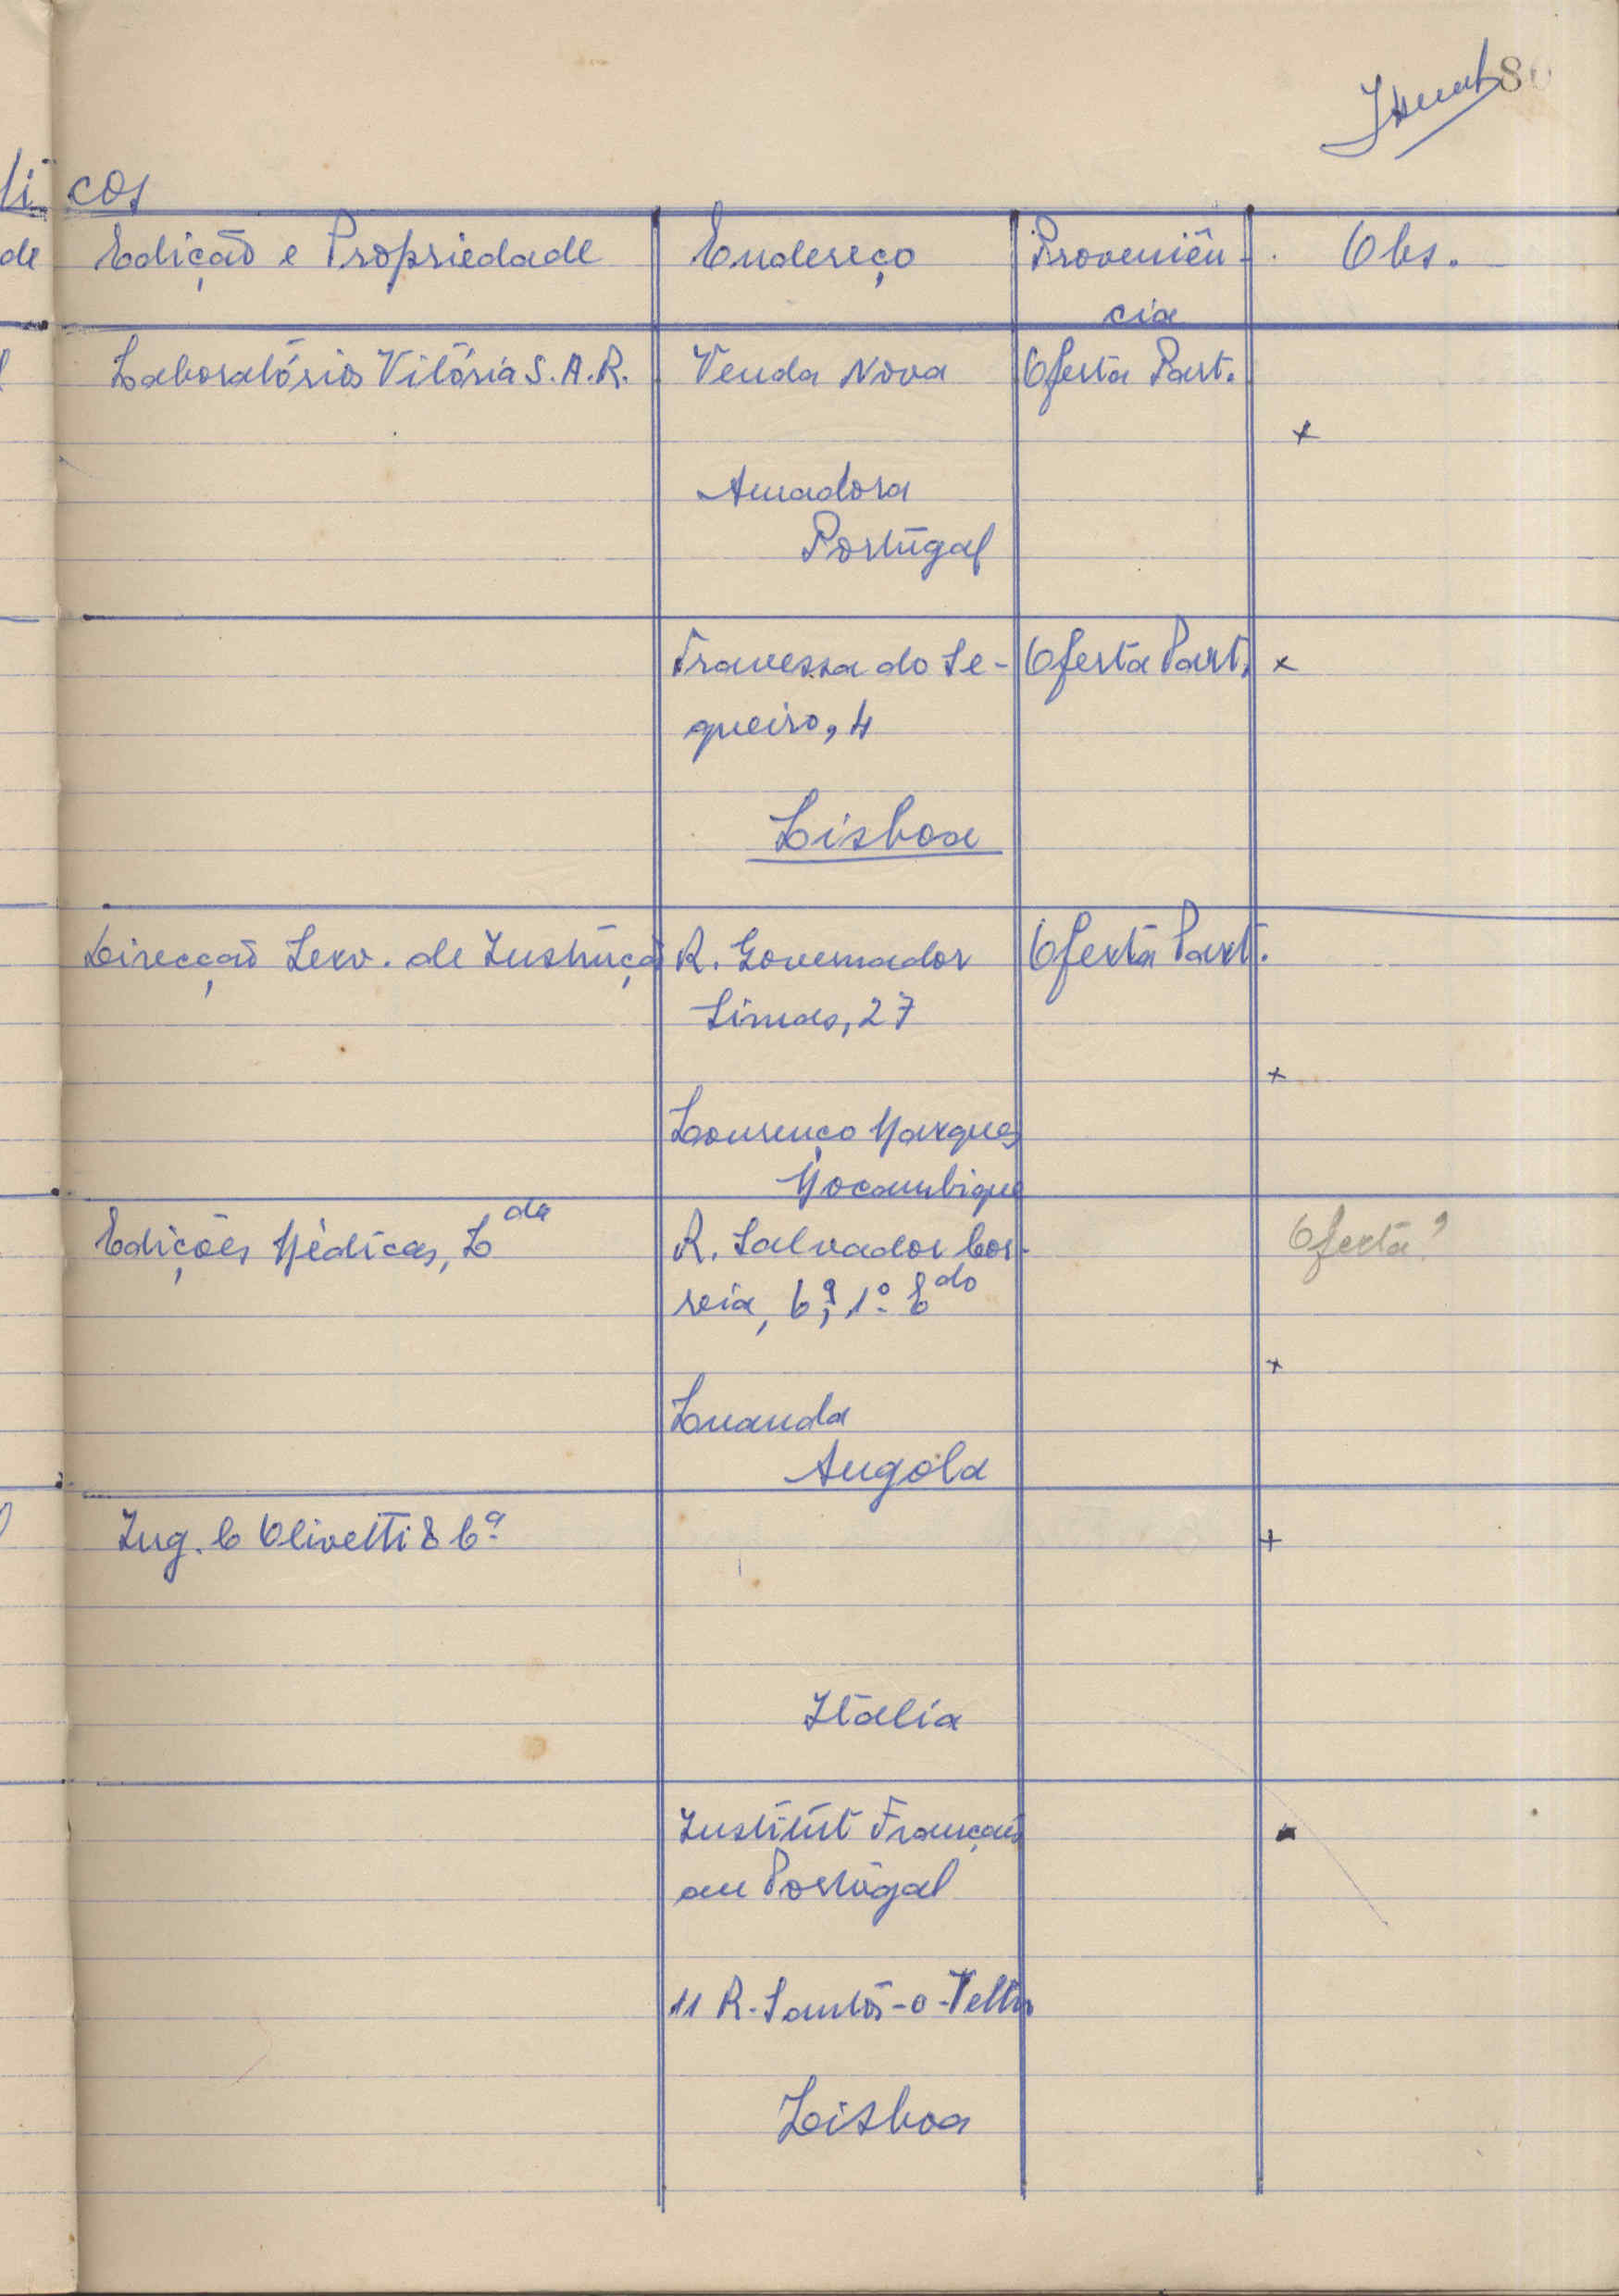 licos
de Edição e Propriedade Endereço Proveniên- Obs.
cia
Laboratórios Vitória S.A.R. Venda Nova Oferta Part.
x
Amadora
Portugal
Travessa do Se- Oferta Part. x
queiro, 4
Lisboa
Direcção Serv. de Instruçã R. Governador Oferta Part.
Simas, 27
x
Lourenço Marques
Moçambique
Edições Médicas, Lda R. Salvador Cor- Oferta?
reia, 6º, 1º Edo
x
Luanda
Angola
Ing. C Olivetti & Cª +
Itália
Institut Français
au Portugal
11 R. Santos-o-Velho
Lisboa